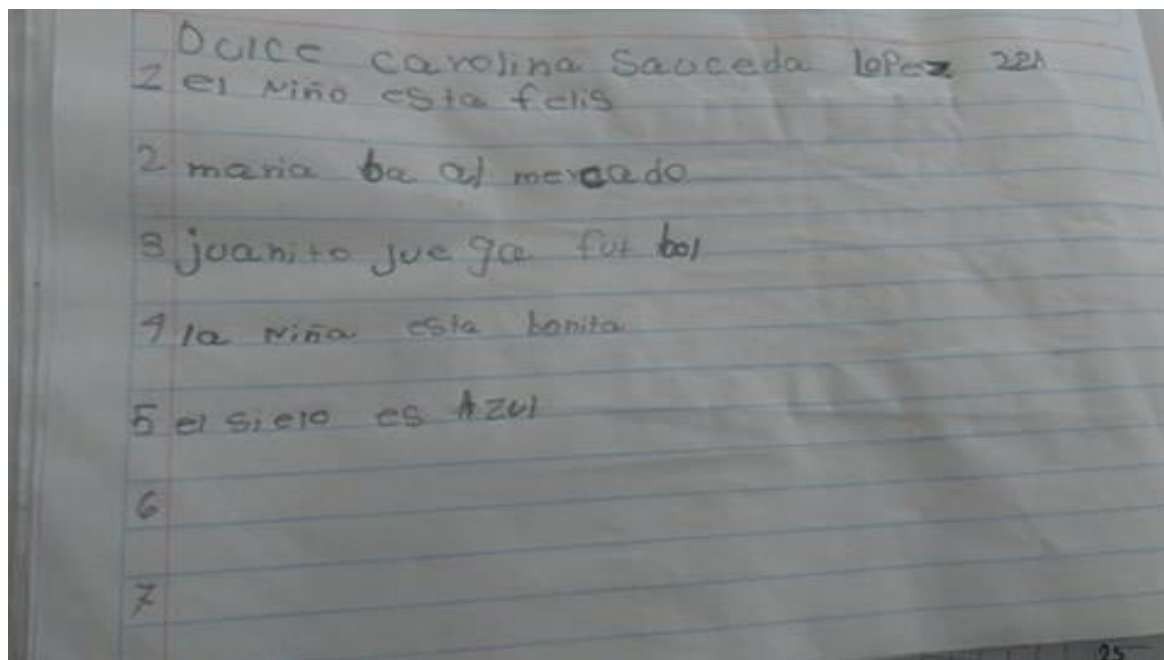 Dulce carolina Sauceda lopez
2 el niño esta felis
2 maria ba al mercado
3 juanito jue ga fut bol
4 la niña esta bonita
5 el sielo es Azul
6
7
25